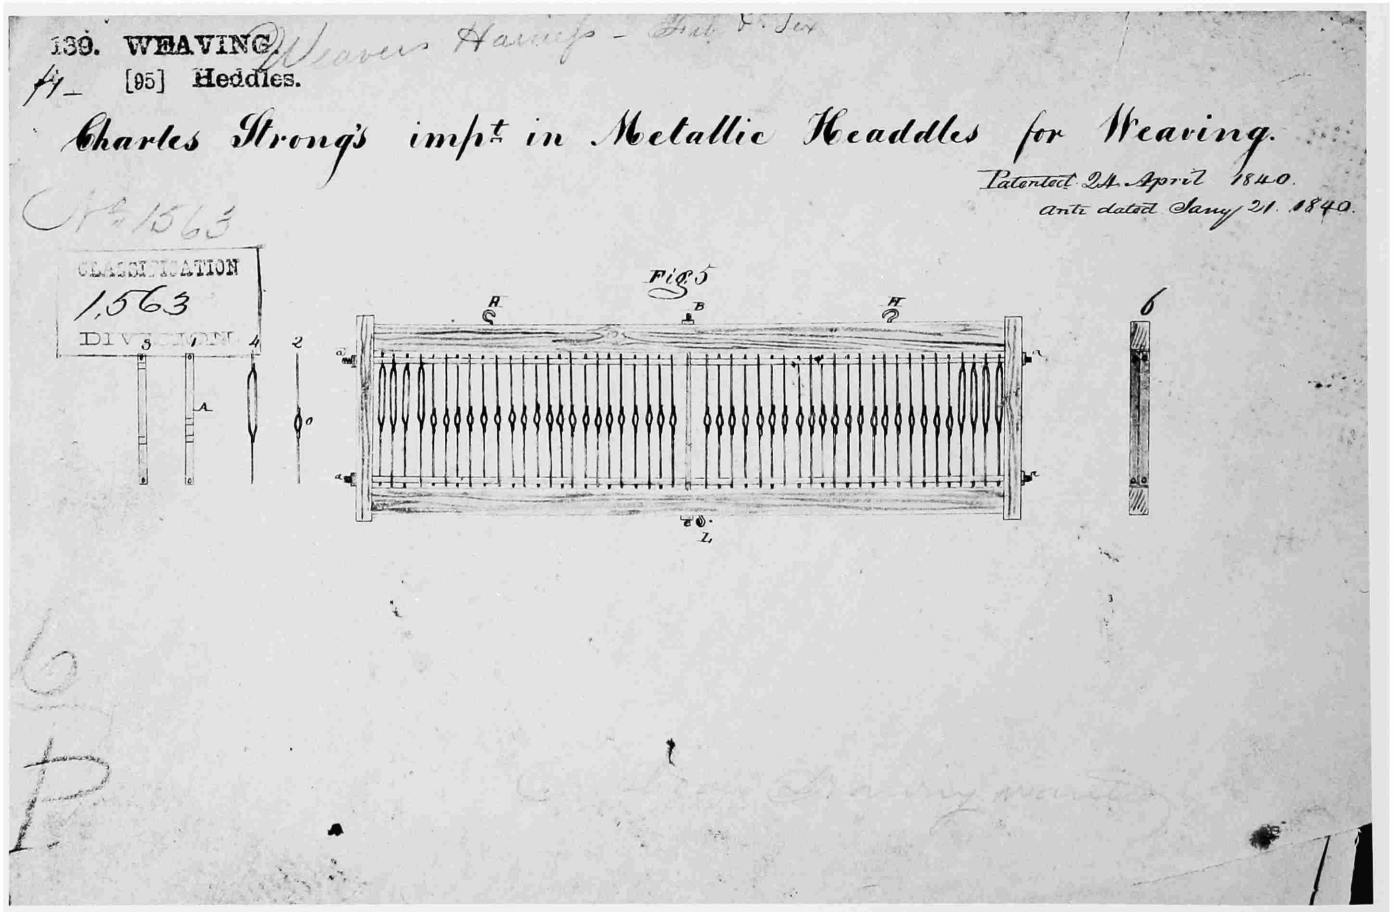 139. WEAVING.
Weavers Harness -
A-
[95] Heddles.
Charles Strong's impt in Metallic Headdles for Weaving.
Patented 24 April 1840.
Anti dated Jany 21. 1840.
No 1563
CLASSIFICATION
1,563
DIVISION
Fig. 5
3
4
2
6
A
o
H
B
H
a
a
a
a
L
6
P.